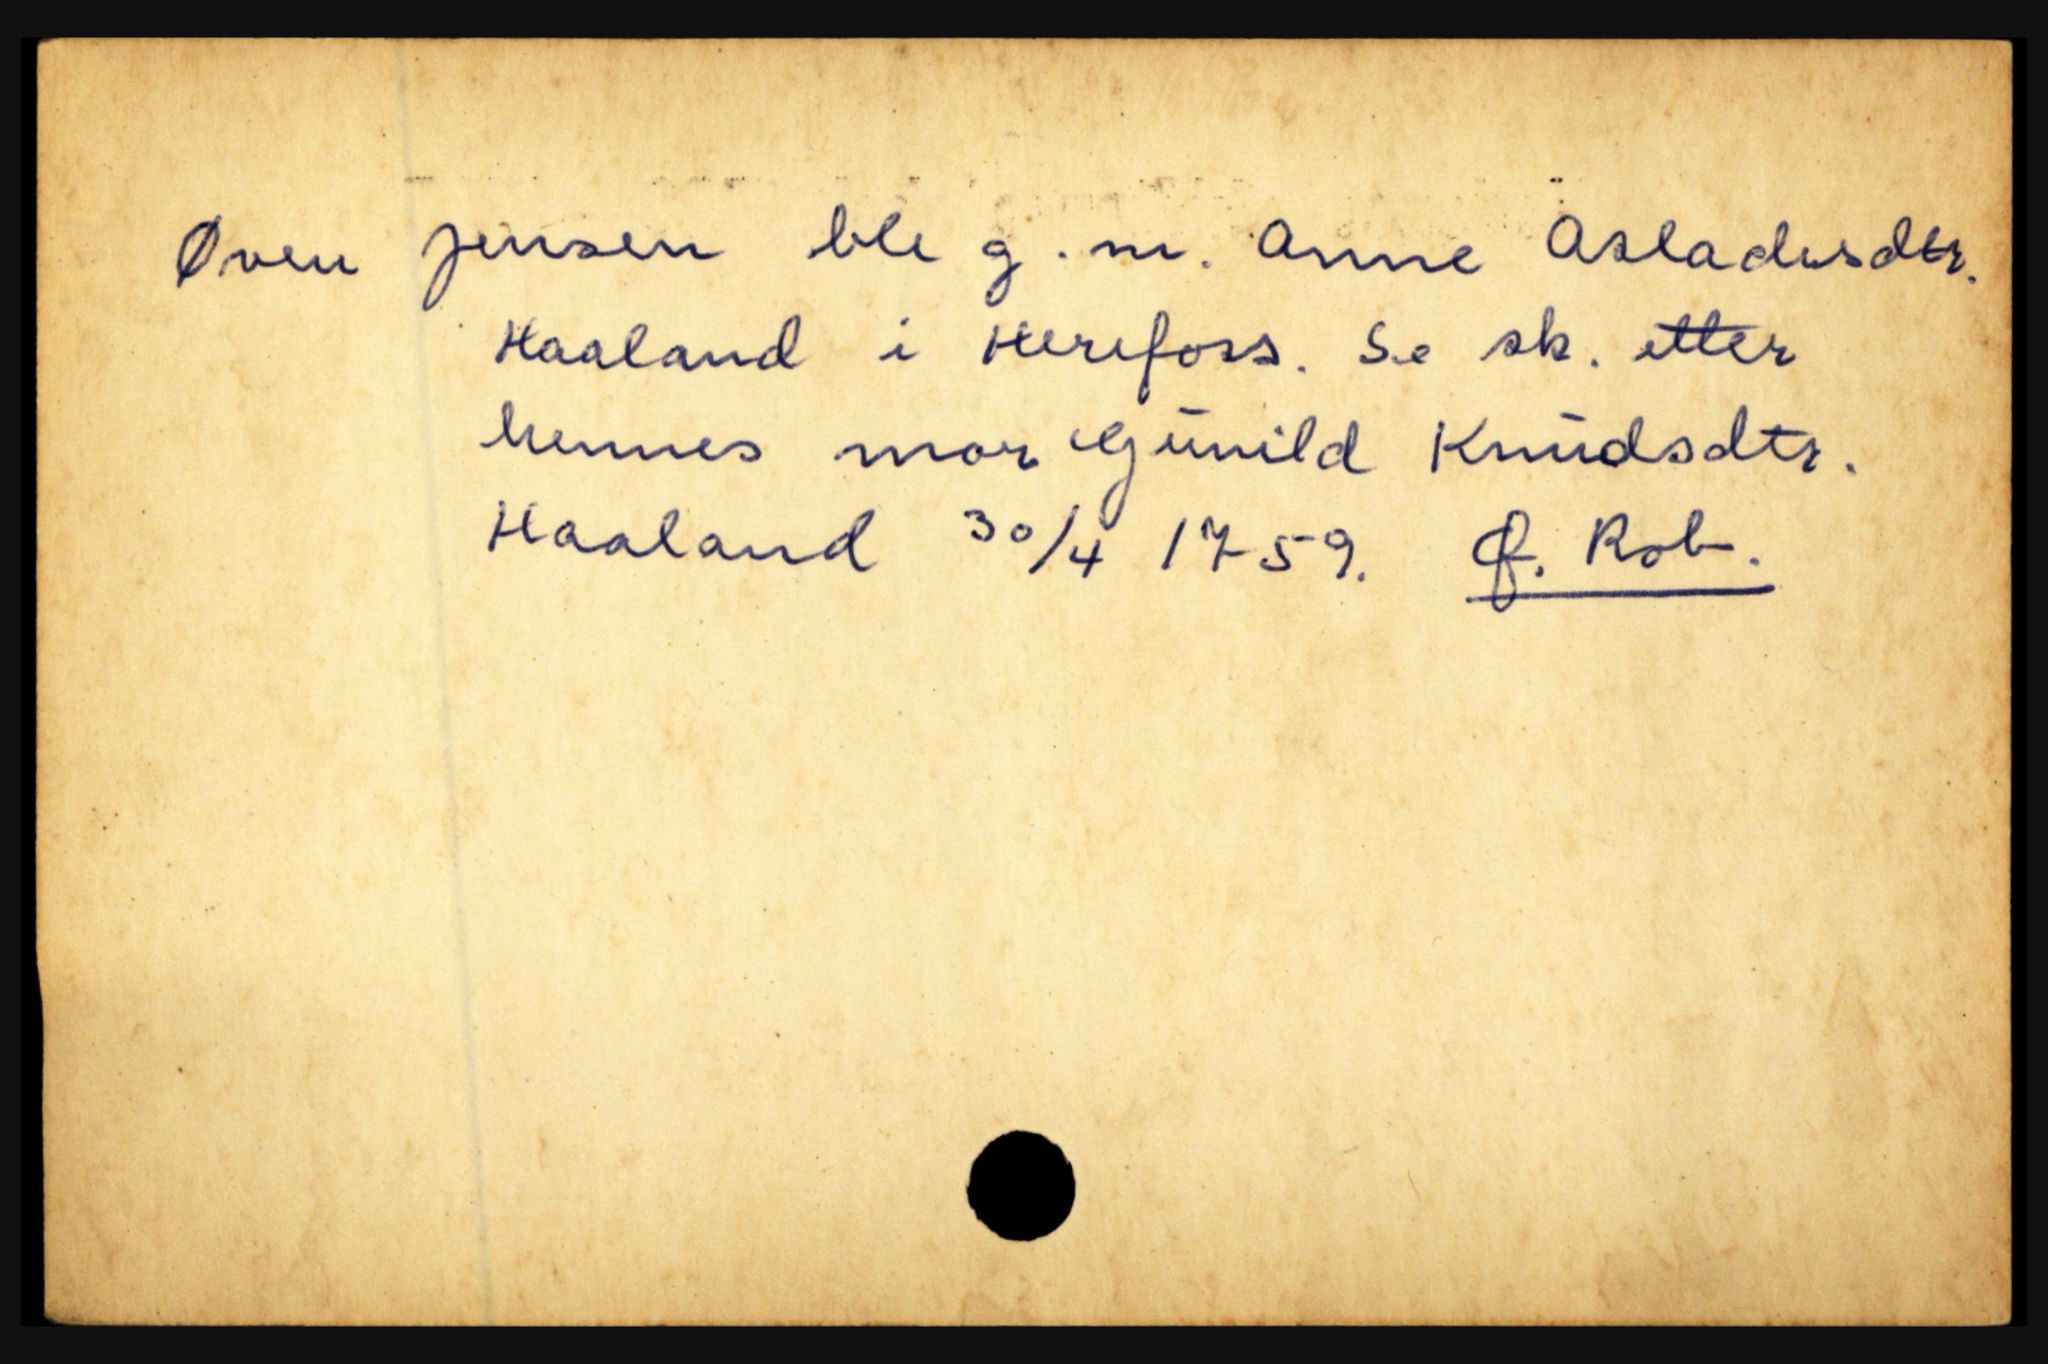 Øven Jensen ble g. m. Anne Asladsdtr.
Haaland i Herefoss. Se sk. etter
hennes mor Gūnild Knūdsdtr.
Haaland 30/4 1759. f. Rob.